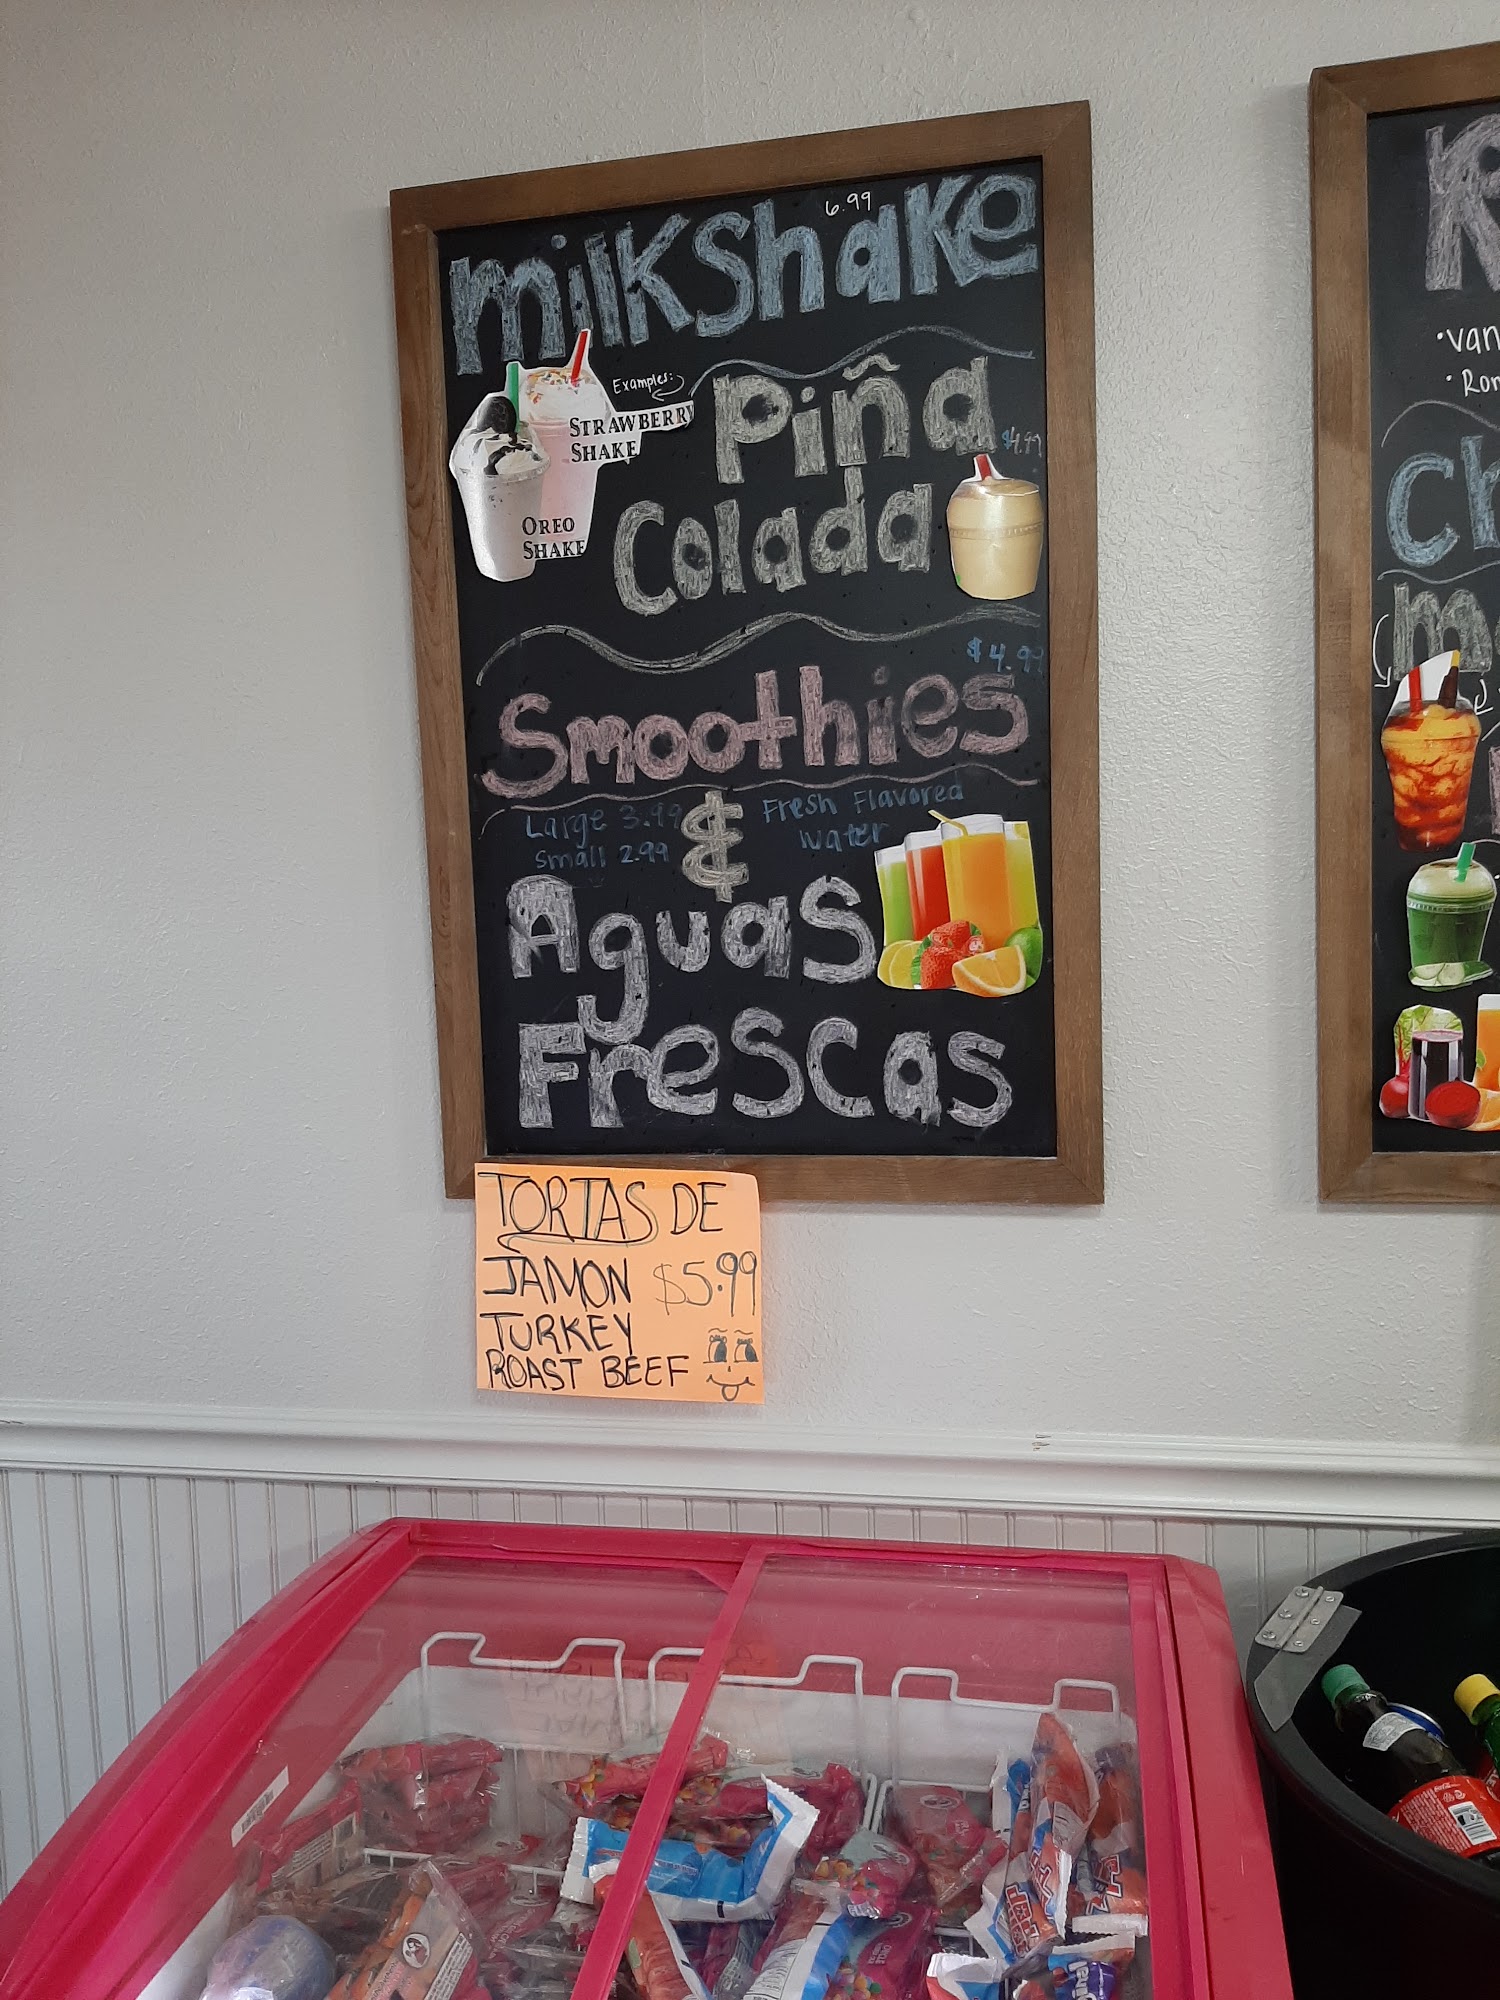 6.99
milkshake
Examples:
STRAWBERRY
SHAKE
OREO
SHAKE
Piña
$4.99
Colada
$4.99
Smoothies
&
Large 3.99
Small 2.99
Fresh Flavored
Water
Aguas
Frescas
TORTAS DE
JAMON $5.99
TURKEY
ROAST BEEF